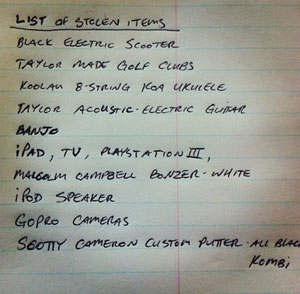 LIST OF STOLEN ITEMS
BLACK ELECTRIC SCOOTER
TAYLOR MADE GOLF CLUBS
KOOLAU 8-STRING KOA UKULELE
TAYLOR ACOUSTIC-ELECTRIC GUITAR
BANJO
iPAD, TV, PLAYSTATION III,
MALCOLM CAMPBELL BONZER - WHITE
iPOD SPEAKER
GOPRO CAMERAS
SCOTTY CAMERON CUSTOM PUTTER - ALL BLACK
KOMBI